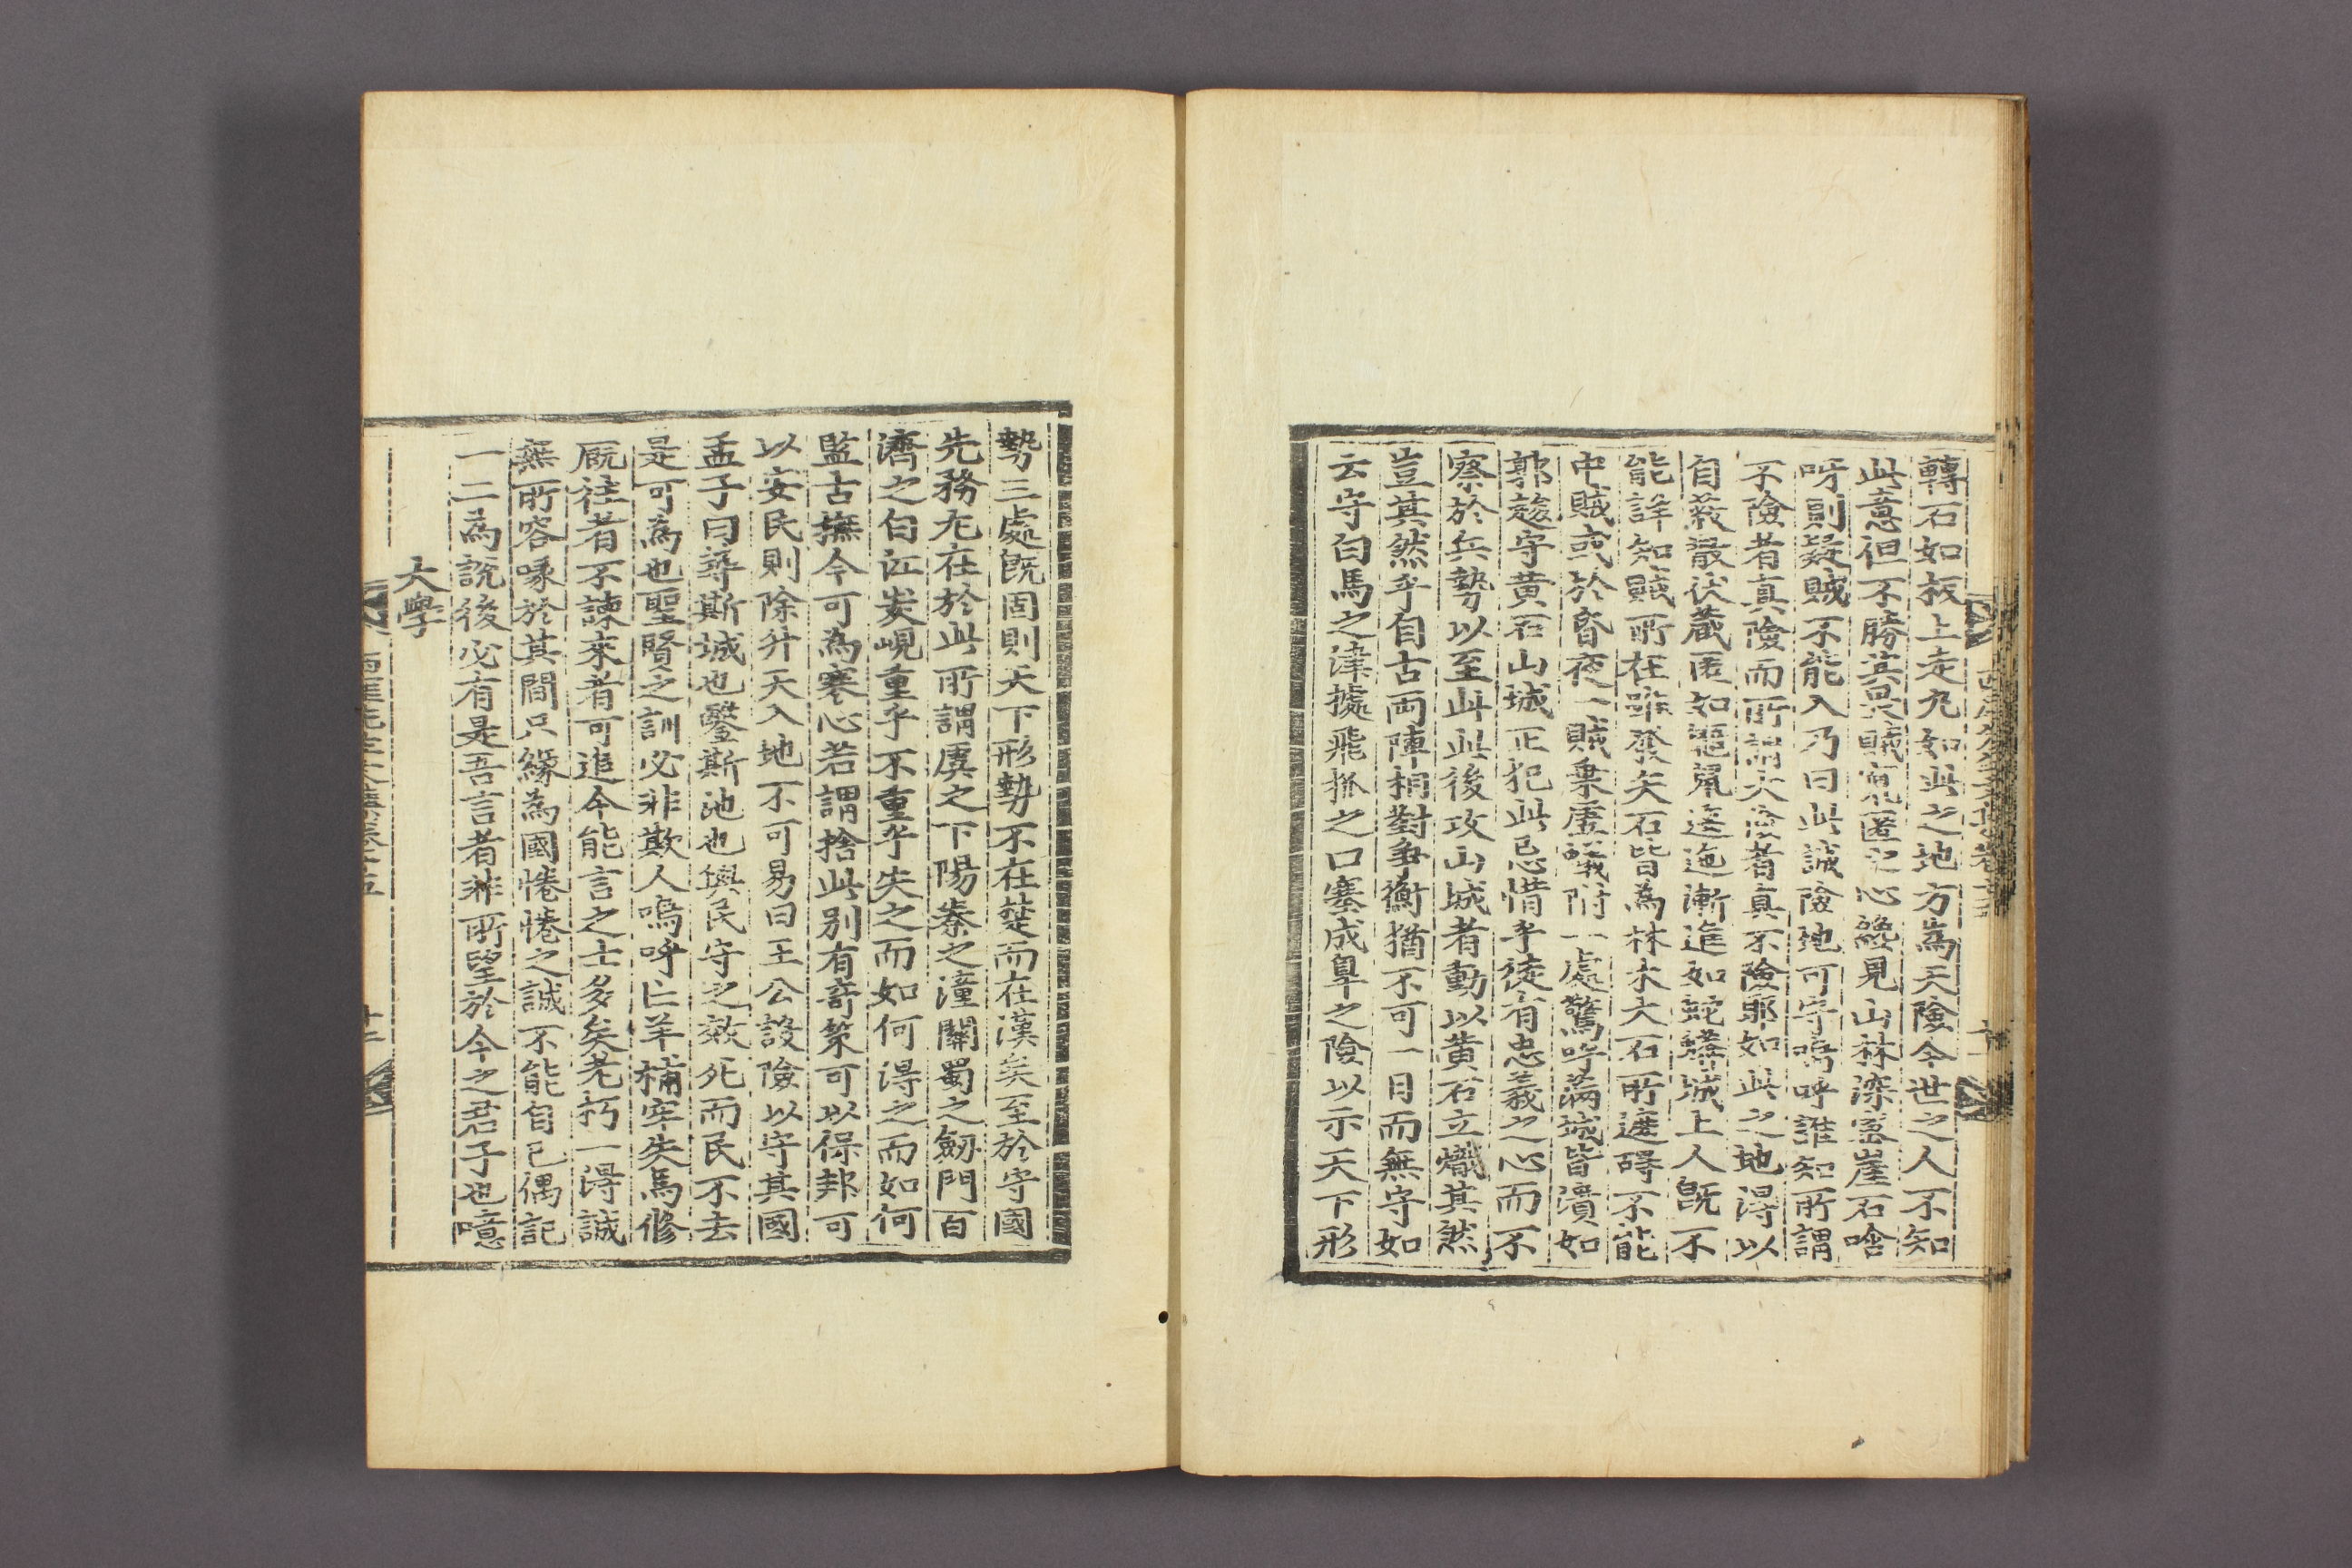 轉石如坂上走丸如此之地方為天險今世之人不知
此意但不勝其畏賊竄匿之心纔見山林深密崖石啥
呀則疑賊不能入乃曰此誠險地可守嗚呼誰知所謂
不險者真險而所謂大險者真不險耶如此之地得以
自蔽散伏藏匿如鼯鼠迤漸進如蛇蟠城上人旣不
能詳知賊所在雖發矢石皆為林木大石所遮碍不能
中賊或於昏夜一賊乗虛蟻附一處驚呼滿城皆潰如
郭䞭守黄石山城正犯此忌惜乎徒有忠義之心而不
察於兵勢以至此此後攻山城者動以黄石立幟其然
豈其然乎自古両陣相對爭衡猶不可一日而無守如
云守白馬之津據飛狐之口塞成臯之險以示天下形
勢三處旣固則天下形勢不在楚而在漢矣至於守國
先務尤在於此所謂虞之下陽秦之潼關蜀之劒門百
濟之白江炭峴重乎不重乎失之而如何得之而如何
監古撫今可為寒心若謂捨此別有奇策可以保邦可
以安民則除升天入地不可易曰王公設險以守其國
孟子曰䂓斯城也鑿斯池也與民守之效死而民不去
是可為也聖賢之訓必非欺人嗚呼亡羊補牢失馬修
廐往者不諫來者可追今能言之士多矣老朽一得誠
無所容喙於其間只緣為國惓惓之誠不能自已偶記
一二為說後必有是吾言者非所望於今之君子也噫
大學
西厓先生文集卷之十五